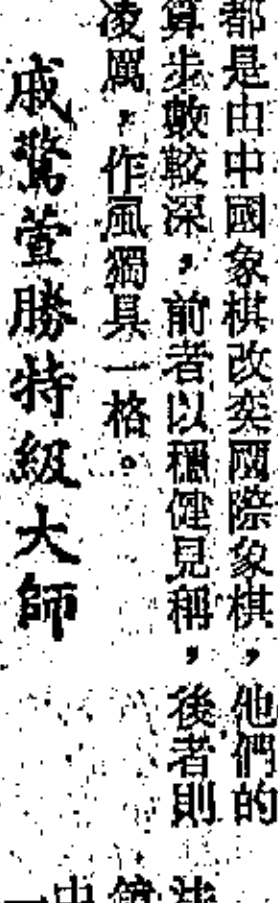 都是由中國象棋改奕國際象棋，他們的
算步數較深，前者以穩健見稱，後者則
凌厲，作風獨具一格。
戚驚萱勝特級大師